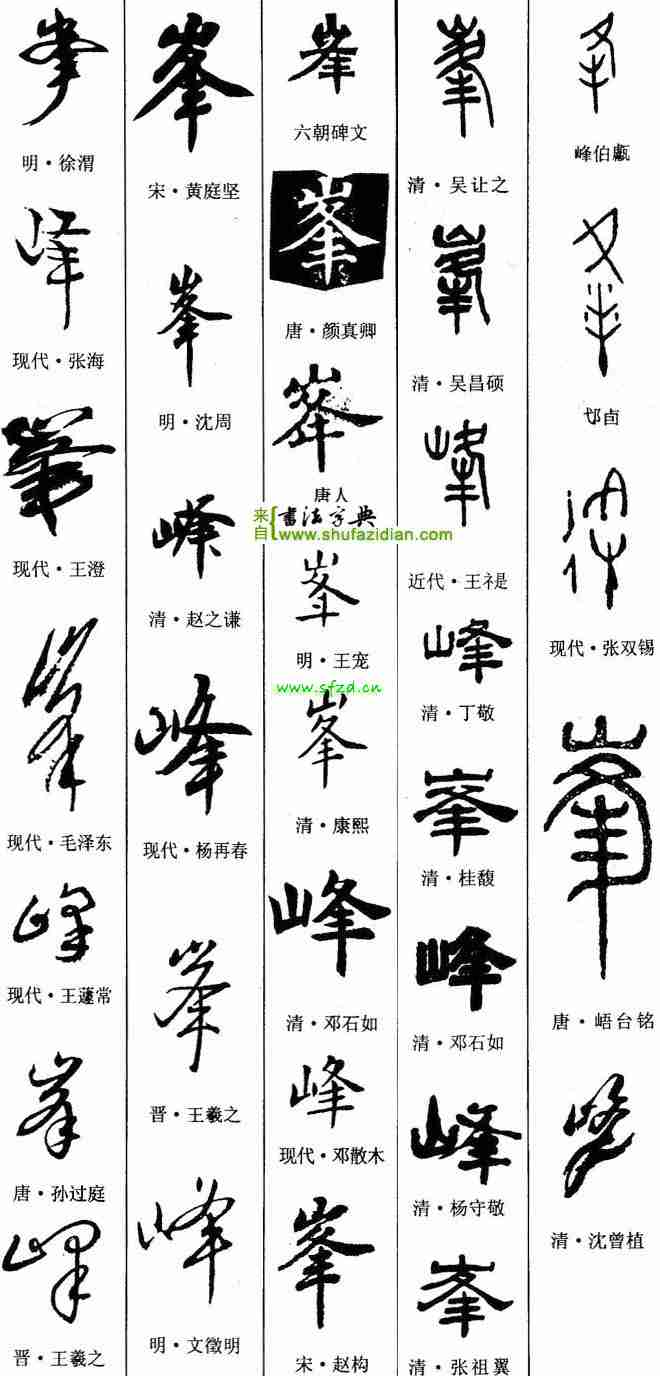 夆
峰伯甗
现代·张双锡
峯
唐·峿台铭
峯
清·沈曾植
峯
清·吴让之
峯
清·吴昌硕
峰
近代·王禔
峰
清·丁敬
峯
清·桂馥
峰
清·邓石如
峰
清·杨守敬
峯
清·张祖翼
峯
六朝碑文
峯
唐·颜真卿
峯
唐人
来自{书法字典
www.shufazidian.com
峯
明·王宠
www.sfzd.cn
峯
清·康熙
峰
清·邓石如
峰
现代·邓散木
峯
宋·赵构
峯
宋·黄庭坚
峯
明·沈周
峰
清·赵之谦
峰
现代·杨再春
峯
晋·王羲之
峰
明·文徵明
峯
明·徐渭
峰
现代·张海
峯
现代·王澄
峯
现代·毛泽东
峰
现代·王蘧常
峯
唐·孙过庭
峰
晋·王羲之